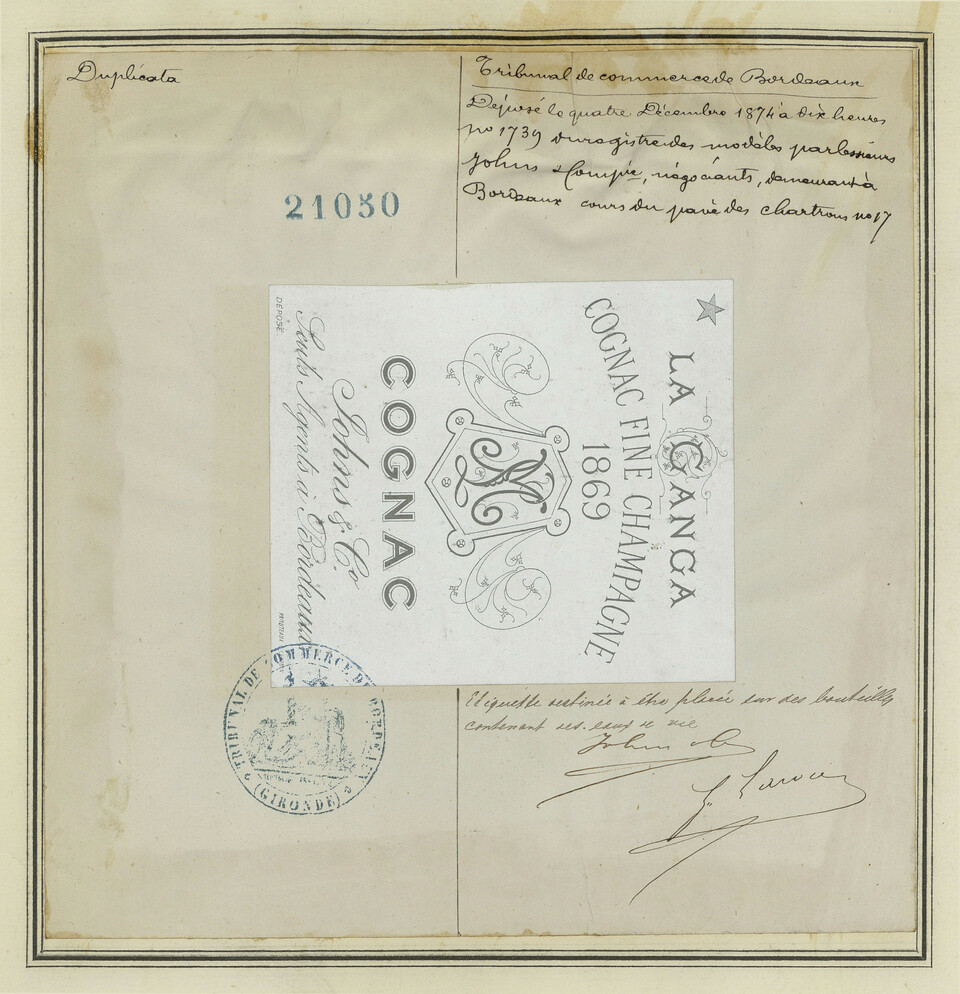 Duplicata
Tribunal de commerce de Bordeaux
Déposé le quatre Décembre 1874 à dix heures
no 1739 du registre des modèles par Messieurs
Johns & Compie, négociants, demeurant à
Bordeaux cours du pavé des chartrons no 17
21050
LA GANGA
COGNAC FINE CHAMPAGNE
1869
M
COGNAC
Johns & Co.
Seuls Agents à Bordeaux
DÉPOSÉ
TRIBUNAL DE COMMERCE DE BORDEAUX
(GIRONDE)
Etiquette destinée à être placée sur des bouteilles
contenant des eaux de vie
Johns & Co